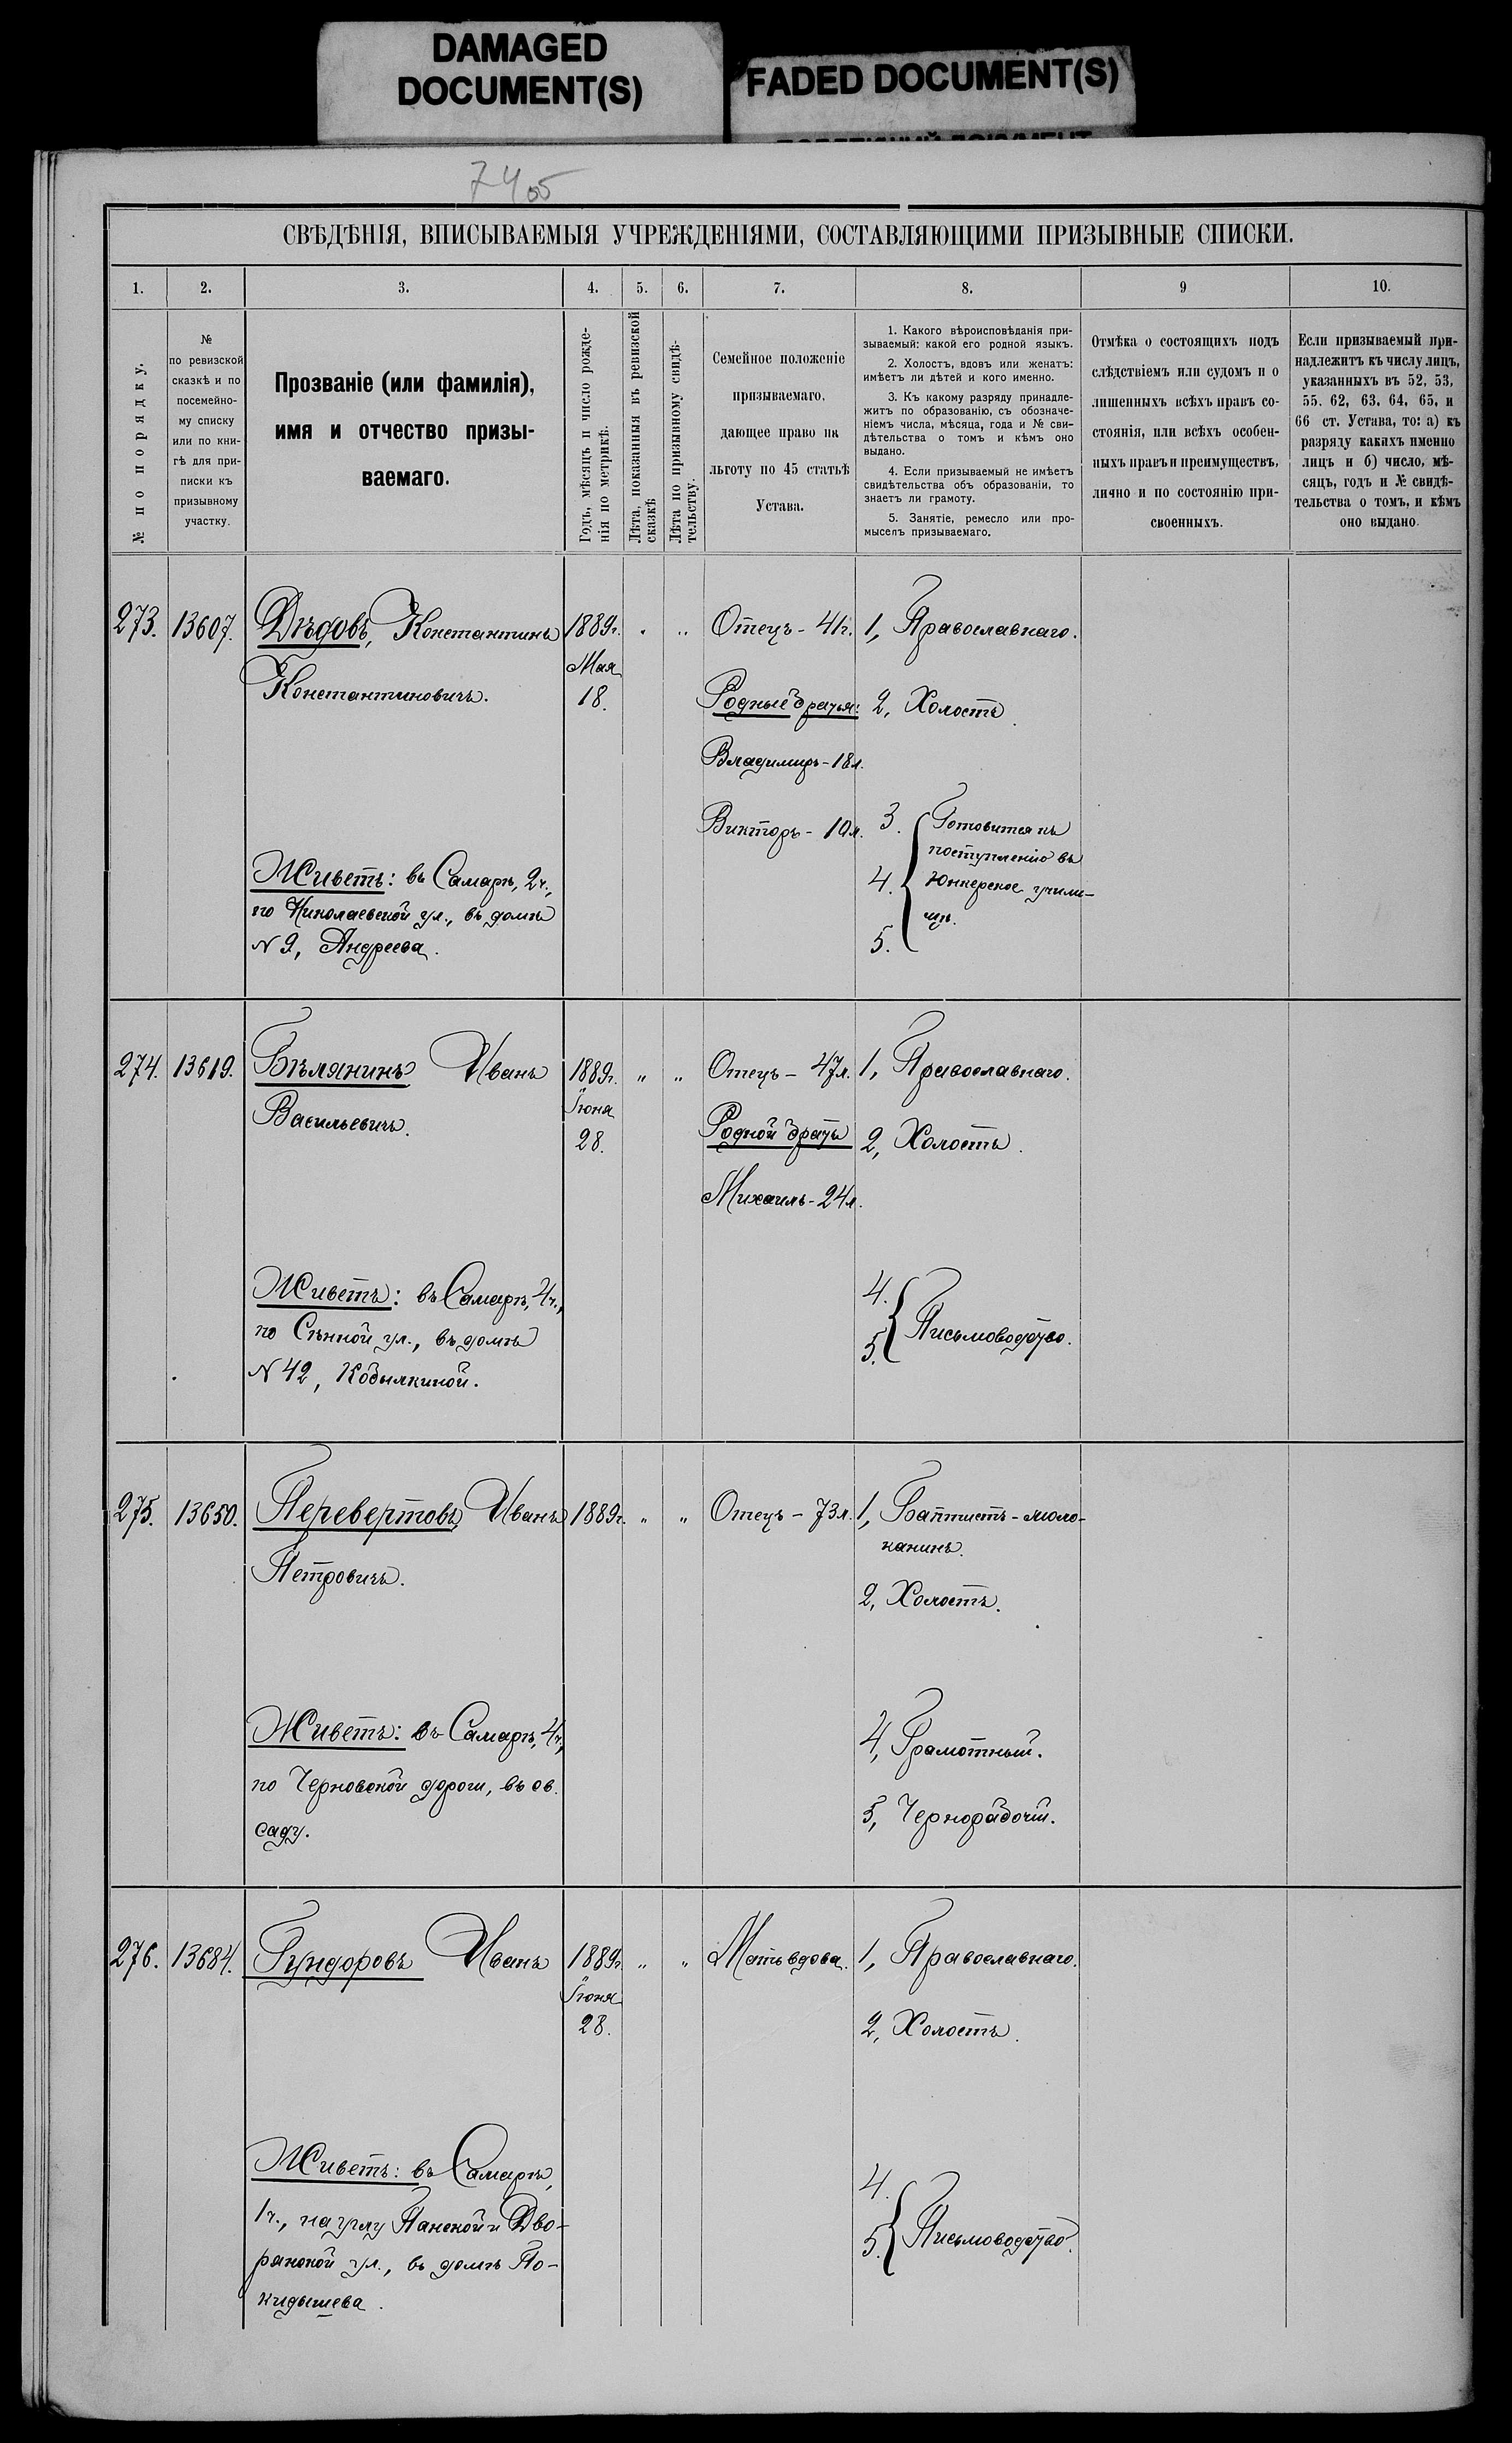 DAMAGED
DOCUMENT(S)
FADED DOCUMENT(S)
СВѢДѢНІЯ, ВПИСЫВАЕМЫЯ УЧРЕЖДЕНІЯМИ, СОСТАВЛЯЮЩИМИ ПРИЗЫВНЫЕ СПИСКИ.
1. 2. 3. 4. 5. 6. 7. 8. 9 10.
№ по порядку.
№
по ревизской
сказкѣ и по
посемейно-
му списку
или по кни-
гѣ для при-
писки къ
призывному
участку.
Прозваніе (или фамилія),
имя и отчество призы-
ваемаго.
Годъ, мѣсяцъ и число рожде-
нія по метрикѣ.
Лѣта, показанныя въ ревизской
сказкѣ
Лѣта по призывному свидѣ-
тельству.
Семейное положеніе
призываемаго,
дающее право на
льготу по 45 статьѣ
Устава.
1. Какого вѣроисповѣданія при-
зываемый: какой его родной языкъ.
2. Холостъ, вдовъ или женатъ:
имѣетъ ли дѣтей и кого именно.
3. Къ какому разряду принадле-
житъ по образованію, съ обозначе-
ніемъ числа, мѣсяца, года и № сви-
дѣтельства о томъ и кѣмъ оно
выдано.
4. Если призываемый не имѣетъ
свидѣтельства объ образованіи, то
знаетъ ли грамоту.
5. Занятіе, ремесло или про-
мыселъ призываемаго.
Отмѣка о состоящихъ подъ
слѣдствіемъ или судомъ и о
лишенныхъ всѣхъ правъ со-
стоянія, или всѣхъ особен-
ныхъ правъ и преимуществъ,
лично и по состоянію при-
своенныхъ.
Если призываемый при-
надлежитъ къ числу лицъ,
указанныхъ въ 52, 53,
55. 62, 63, 64, 65, и
66 ст. Устава, то: а) къ
разряду какихъ именно
лицъ и б) число, мѣ-
сяцъ, годъ и № свидѣ-
тельства о томъ, и кѣмъ
оно выдано.
273. 13607. Дѣдовъ, Константинъ
Константиновичъ.
Живетъ: въ Самарѣ, 2ч.,
по Николаевской ул., въ домѣ
N 9, Андреева.
1889г.
Мая
18.
Отецъ - 41г.
Родные братья:
Владимиръ - 18л.
Викторъ - 10л.
1, Православнаго.
2, Холостъ
3. Готовится къ
поступленію въ
4. Юнкерское учили-
щѣ.
5.
274. 13619. Бѣлянинъ Иванъ
Васильевичъ.
Живетъ: въ Самарѣ, 4ч.,
по Сѣнной ул., въ домѣ
N 42, Кобылкиной.
1889г.
Іюня
28.
" "
Отецъ - 47л.
Родной братъ
Михаилъ - 24л.
1, Православнаго.
2, Холостъ.
4.
5. Письмоводство.
275. 13650. Перевертовъ, Иванъ
Петровичъ.
Живетъ: въ Самарѣ, 4ч,
по Черновской дороги, въ св.
саду.
1889г.
" "
Отецъ - 73л.
1, Баптистъ - моло-
канинъ.
2, Холостъ.
4, Грамотный.
5, Чернорабочій.
276. 13684. Гундоровъ Иванъ
Живетъ: въ Самарѣ,
1ч., на углу Панской и Дво-
рянской ул., въ домѣ По-
кидышева.
1889г.
Іюня
28.
" "
Мать вдова.
1, Православнаго.
2, Холостъ.
4.
5. Письмоводство.